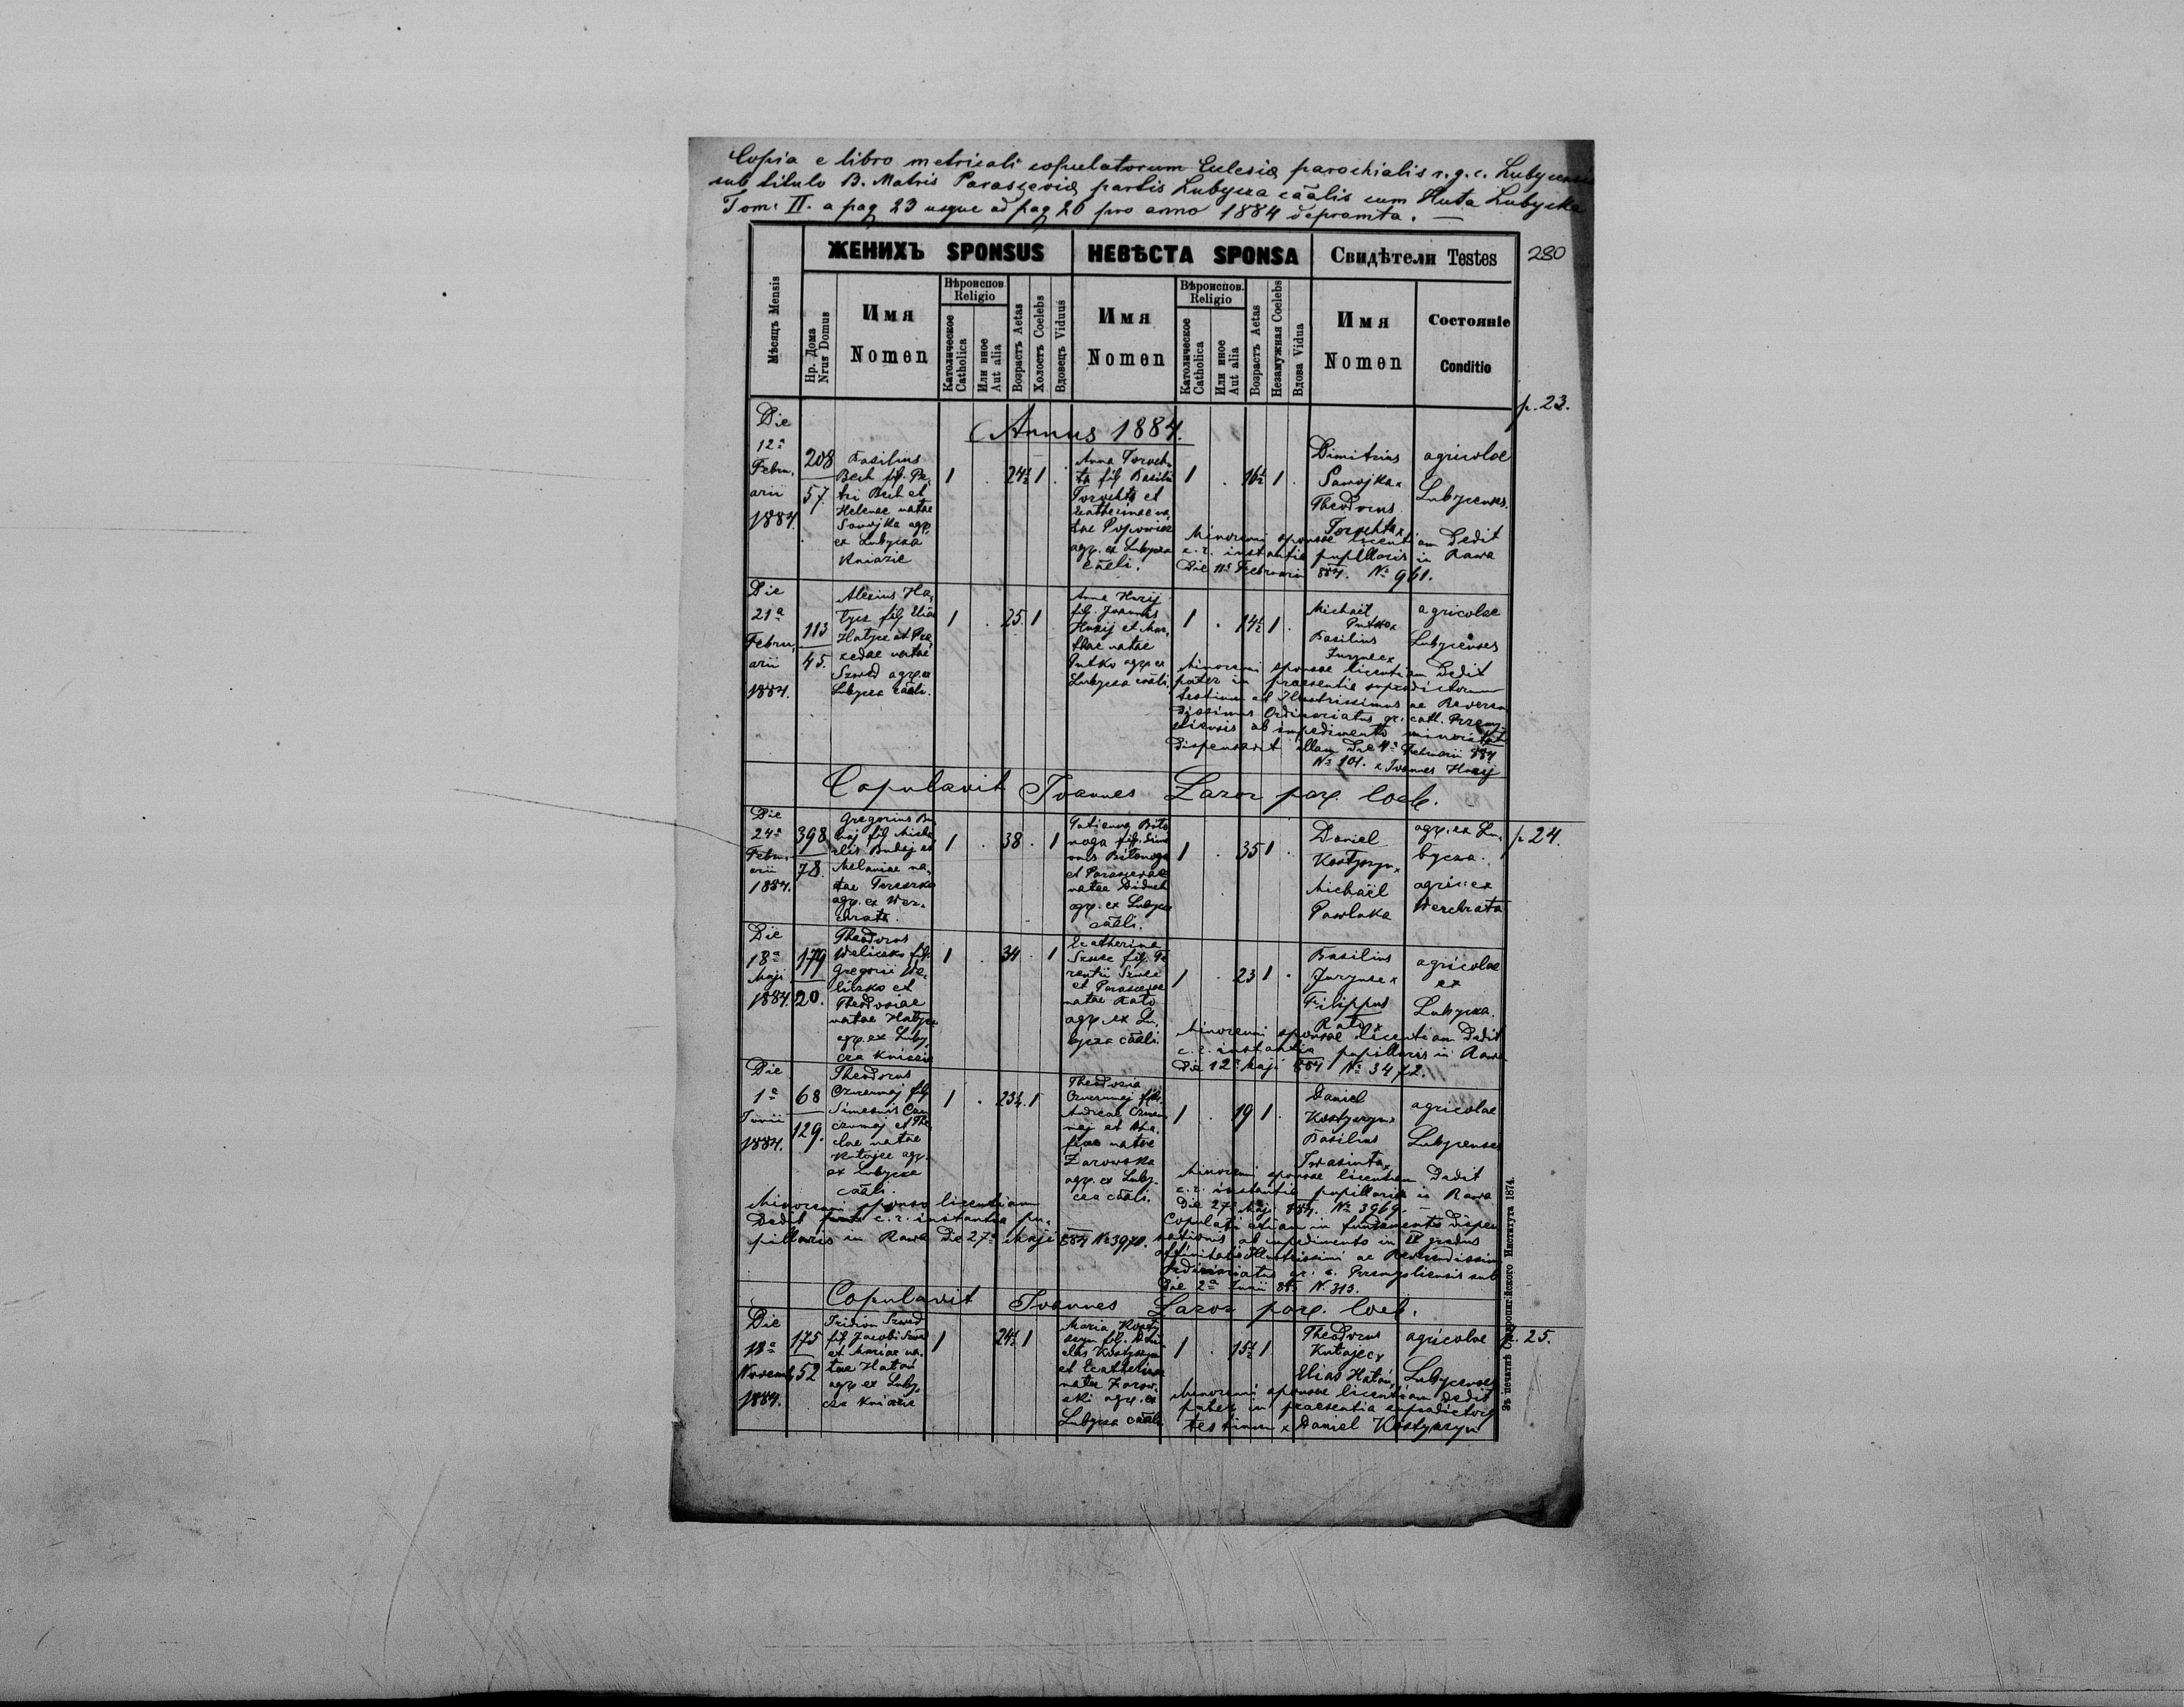 Copia e libro metricali copulatorum Eclesiæ parochialis r. g. c. Lubycensis
sub titulo B. Matris Paraszeviæ partis Lubycza cãalis cum Huta Lubycka
Tom: II. a pag 23 usque ad pag 26 pro anno 1884 depromta. —
280
Мѣсяцъ Mensis
ЖЕНИХЪ SPONSUS
НЕВѢСТА SPONSA
Свидѣтели Testes
Нр. Дома
Nrus Domus
Имя
Nomen
Вѣроиспов.
Religio
Католическое
Catholica
Или иное
Aut alia
Возрастъ Aetas
Холостъ Coelebs
Вдовецъ Viduus
Имя
Nomen
Вѣроиспов.
Religio
Католическое
Catholica
Или иное
Aut alia
Возрастъ Aetas
Незамужная Coelebs
Вдова Vidua
Имя
Nomen
Состояніе
Conditio
p. 23.
Annus 1884.
Die
12ª
Febru,
arii
1884.
208
57.
Basilius
Bech fil. Pe,
tri Bech et
Helenae natae
Sawojka agr.
ex Lubycza
Kniazie
1 . 24½ 1 .
Anna Toroch,
ta fil Basilii
Torochta et
Ecatherinae na,
tae Popowicz
agr. ex Lubycza
cãali.
1 . 16½ 1 .
Dimitrius
Sawojka x
Theodorus
Torochta x
agricolae
Lubycenses.
Minorenni sponsae licentiam dedit
c. r. instantia pupillaris in Rawa
die 11ª Februarii 884. Nº 961.
Die
21ª
Febru,
arii
1884.
113
45.
Alexius Ha,
tycz fil Eliae
Hatycz et Pra,
xedae natae
Szwed agr. ex
Lubycza cãali.
1 . 25. 1
Anna Huzij
fil. Joannis
Huzij et Mar,
thae natae
Putko agr. ex
Lubycza cãali.
1 . 14½ 1 .
Michaël
Putko x
Basilius
Juryne x
agricolae
Lubycenses
Minorenni sponsae licentiam dedit
pater in praesentia supradictorum
testium et Illustrissimus ac Reveren
dissimus Ordinariatus gr. cath. Premy,
sliensis ab impedimento minorität
dispensavit illam die 4ª Februarii 884
Nº 101. x Ivannes Huzij
Copulavit Ioannes Lazor par. loci.
p 24.
Die
24ª
Febru,
arii
1884.
398
78.
Gregorius Bu
dej fil Micha,
elis Budej et
Melaniae na,
tae Tereszko
agr. ex Wer,
chrata.
1 . 38 . 1
Tatianna Biło
noga fil. Sime
onis Biłonoga
et Parascevae
natae Diduch
agr. ex Lubycza
cãali.
1 . 35 1 .
Daniel
Kostyszyn x
Michaël
Pawluka
agr. ex Lu,
bycza.
agric. ex
Werchrata
Die
18ª
Maji
1884.
179
20.
Theodorus
Weliczko fil.
Gregorii We,
liczko et
Theodosiae
natae Hatycz
agr. ex Luby,
cza Kniazie
1 . 34 . 1
Ecatherina
Szwec fil. Te
rentii Szwec
et Parascevae
natae Rato
agr. ex Lu,
bycza cãali.
1 . 23 1 .
Basilius
Juryne x
Filippus
Rato x
agricolae
ex
Lubycza.
Minorenni sponsae licentiam dedit
c. r. instantia pupillaris in Rawa
die 12ª Maji 884 Nº 3472.
Die
1ª
Junii
1884.
68
129.
Theodorus
Czuczmaj fil
Simeonis Czu
czmaj et The
clae natae
Kutojec agr.
ex Lubycza
cãali.
1 . 23½. 1
Theodosia
Czuczmaj fil.
Andreae Czucz
maj et Aga,
fiae natae
Żarowska
agr. ex Luby,
cza cãali.
1 . 19 1 .
Daniel
Kostyszyn x
Basilius
Iwasiuta x
agricolae
Lubycenses
Minorenni sponsae licentiam dedit
c. r. instantia pupillaris in Rawa
die 27ª Maji 884. Nº 3969. —
Minorenni sponso licentiam
dedit c. r. instantia pu,
pillaris in Rawa die 27ª Maji 884 Nº 3970.
Copulati etiam in fundamento dispen
sationis ab impedimento in IV gradus
affinitatis Illustrissimi ac Reverendissimi
Ordinariatus gr. c. Premysliensis sub
die 2ª Junii 884 N. 313.
Copulavit Ioannes Lazor par. loci.
p. 25.
Die
18ª
Novemb,
1884.
175
52
Tridon Szwed
fil Jacobi Szwed
et Mariae na,
tae Hatań
agr ex Luby,
cza Kniazie
1 24½ 1
Maria Kosty
szyn fil. Dani
elis Kostyszyn
et Ecatherinae
natae Żarow,
ski agr. ex
Lubycza cãali.
1 . 15½ 1 .
Theodorus
Kutojec x
Elias Hatań x
agricolae
Lubycenses
Minorenni sponsae licentiam dedit
pater in praesentia supradictorum
testium x Daniel Kostyszyn
Зъ печатнѣ Ставропигійского Института 1874.